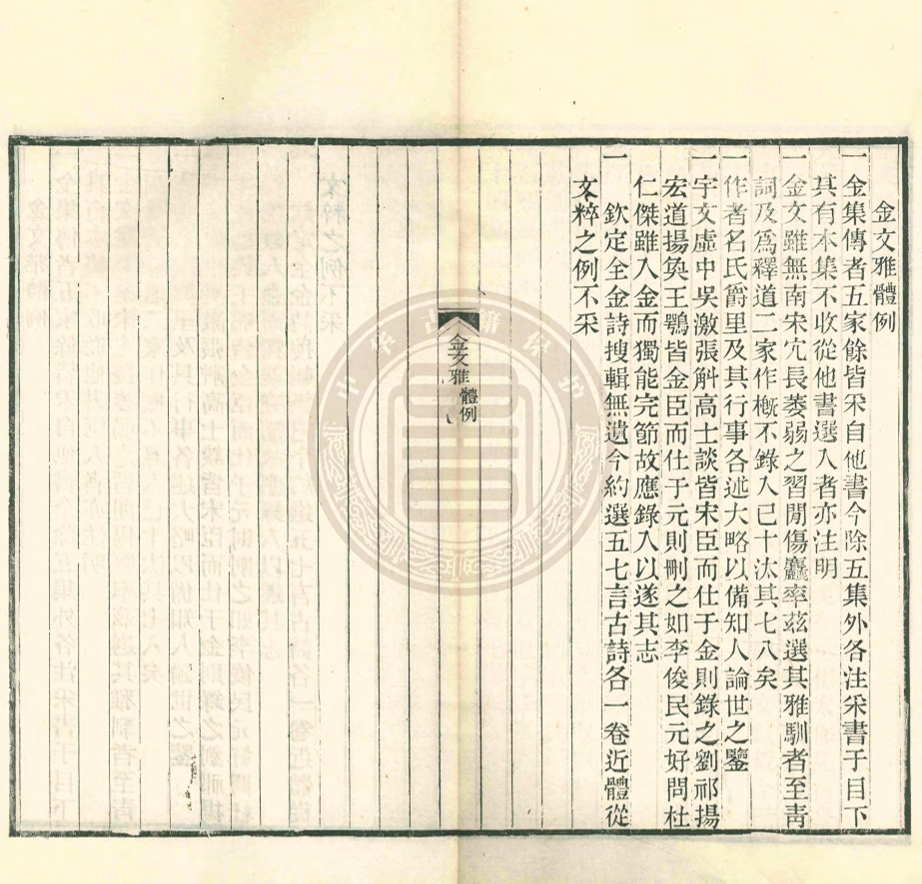 金文雅體例
一金集傳者五家餘皆采自他書今除五集外各注采書于目下
其有本集不收從他書選入者亦注明
一金文雖無南宋宂長萎弱之習閒傷麤率兹選其雅馴者至靑
詞及爲釋道二家作槪不錄入已十汰其七八矣
一作者名氏爵里及其行事各述大略以備知人論世之鑒
一宇文虛中吳激張斛高士談皆宋臣而仕于金則錄之劉祁揚
宏道揚奐王鶚皆金臣而仕于元則刪之如李俊民元好問杜
仁傑雖入金而獨能完節故應錄入以遂其志
一 欽定全金詩搜輯無遺今約選五七言古詩各一卷近體從
文粹之例不采
金文雅 體例